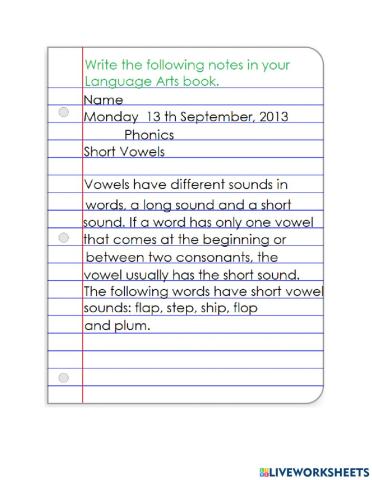 Write the following notes in your
Language Arts book.
Name
Monday 13 th September, 2013
Phonics
Short Vowels
Vowels have different sounds in
words, a long sound and a short
sound. If a word has only one vowel
that comes at the beginning or
between two consonants, the
vowel usually has the short sound.
The following words have short vowel
sounds: flap, step, ship, flop
and plum.
LIVEWORKSHEETS